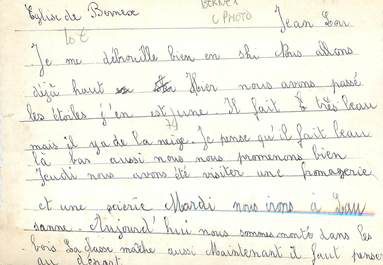 Eglise de Bernex
BERNEX
C PHOTO
Jean Lou
Je me débrouille bien en ski Nous allons
déjà haut Hier nous avons passé
les étoiles j'en est une. Il fait très beau
mais il ya de la neige. Je pense qu'il fait beau
là bas aussi nous nous promenons bien
Jeudi nous avons été visiter une fromagerie
et une scierie Mardi nous irons à Lau
sanne. Aujourd'hui nous sommes monté dans les
bois La classe mathe aussi Maintenant il faut penser
au départ